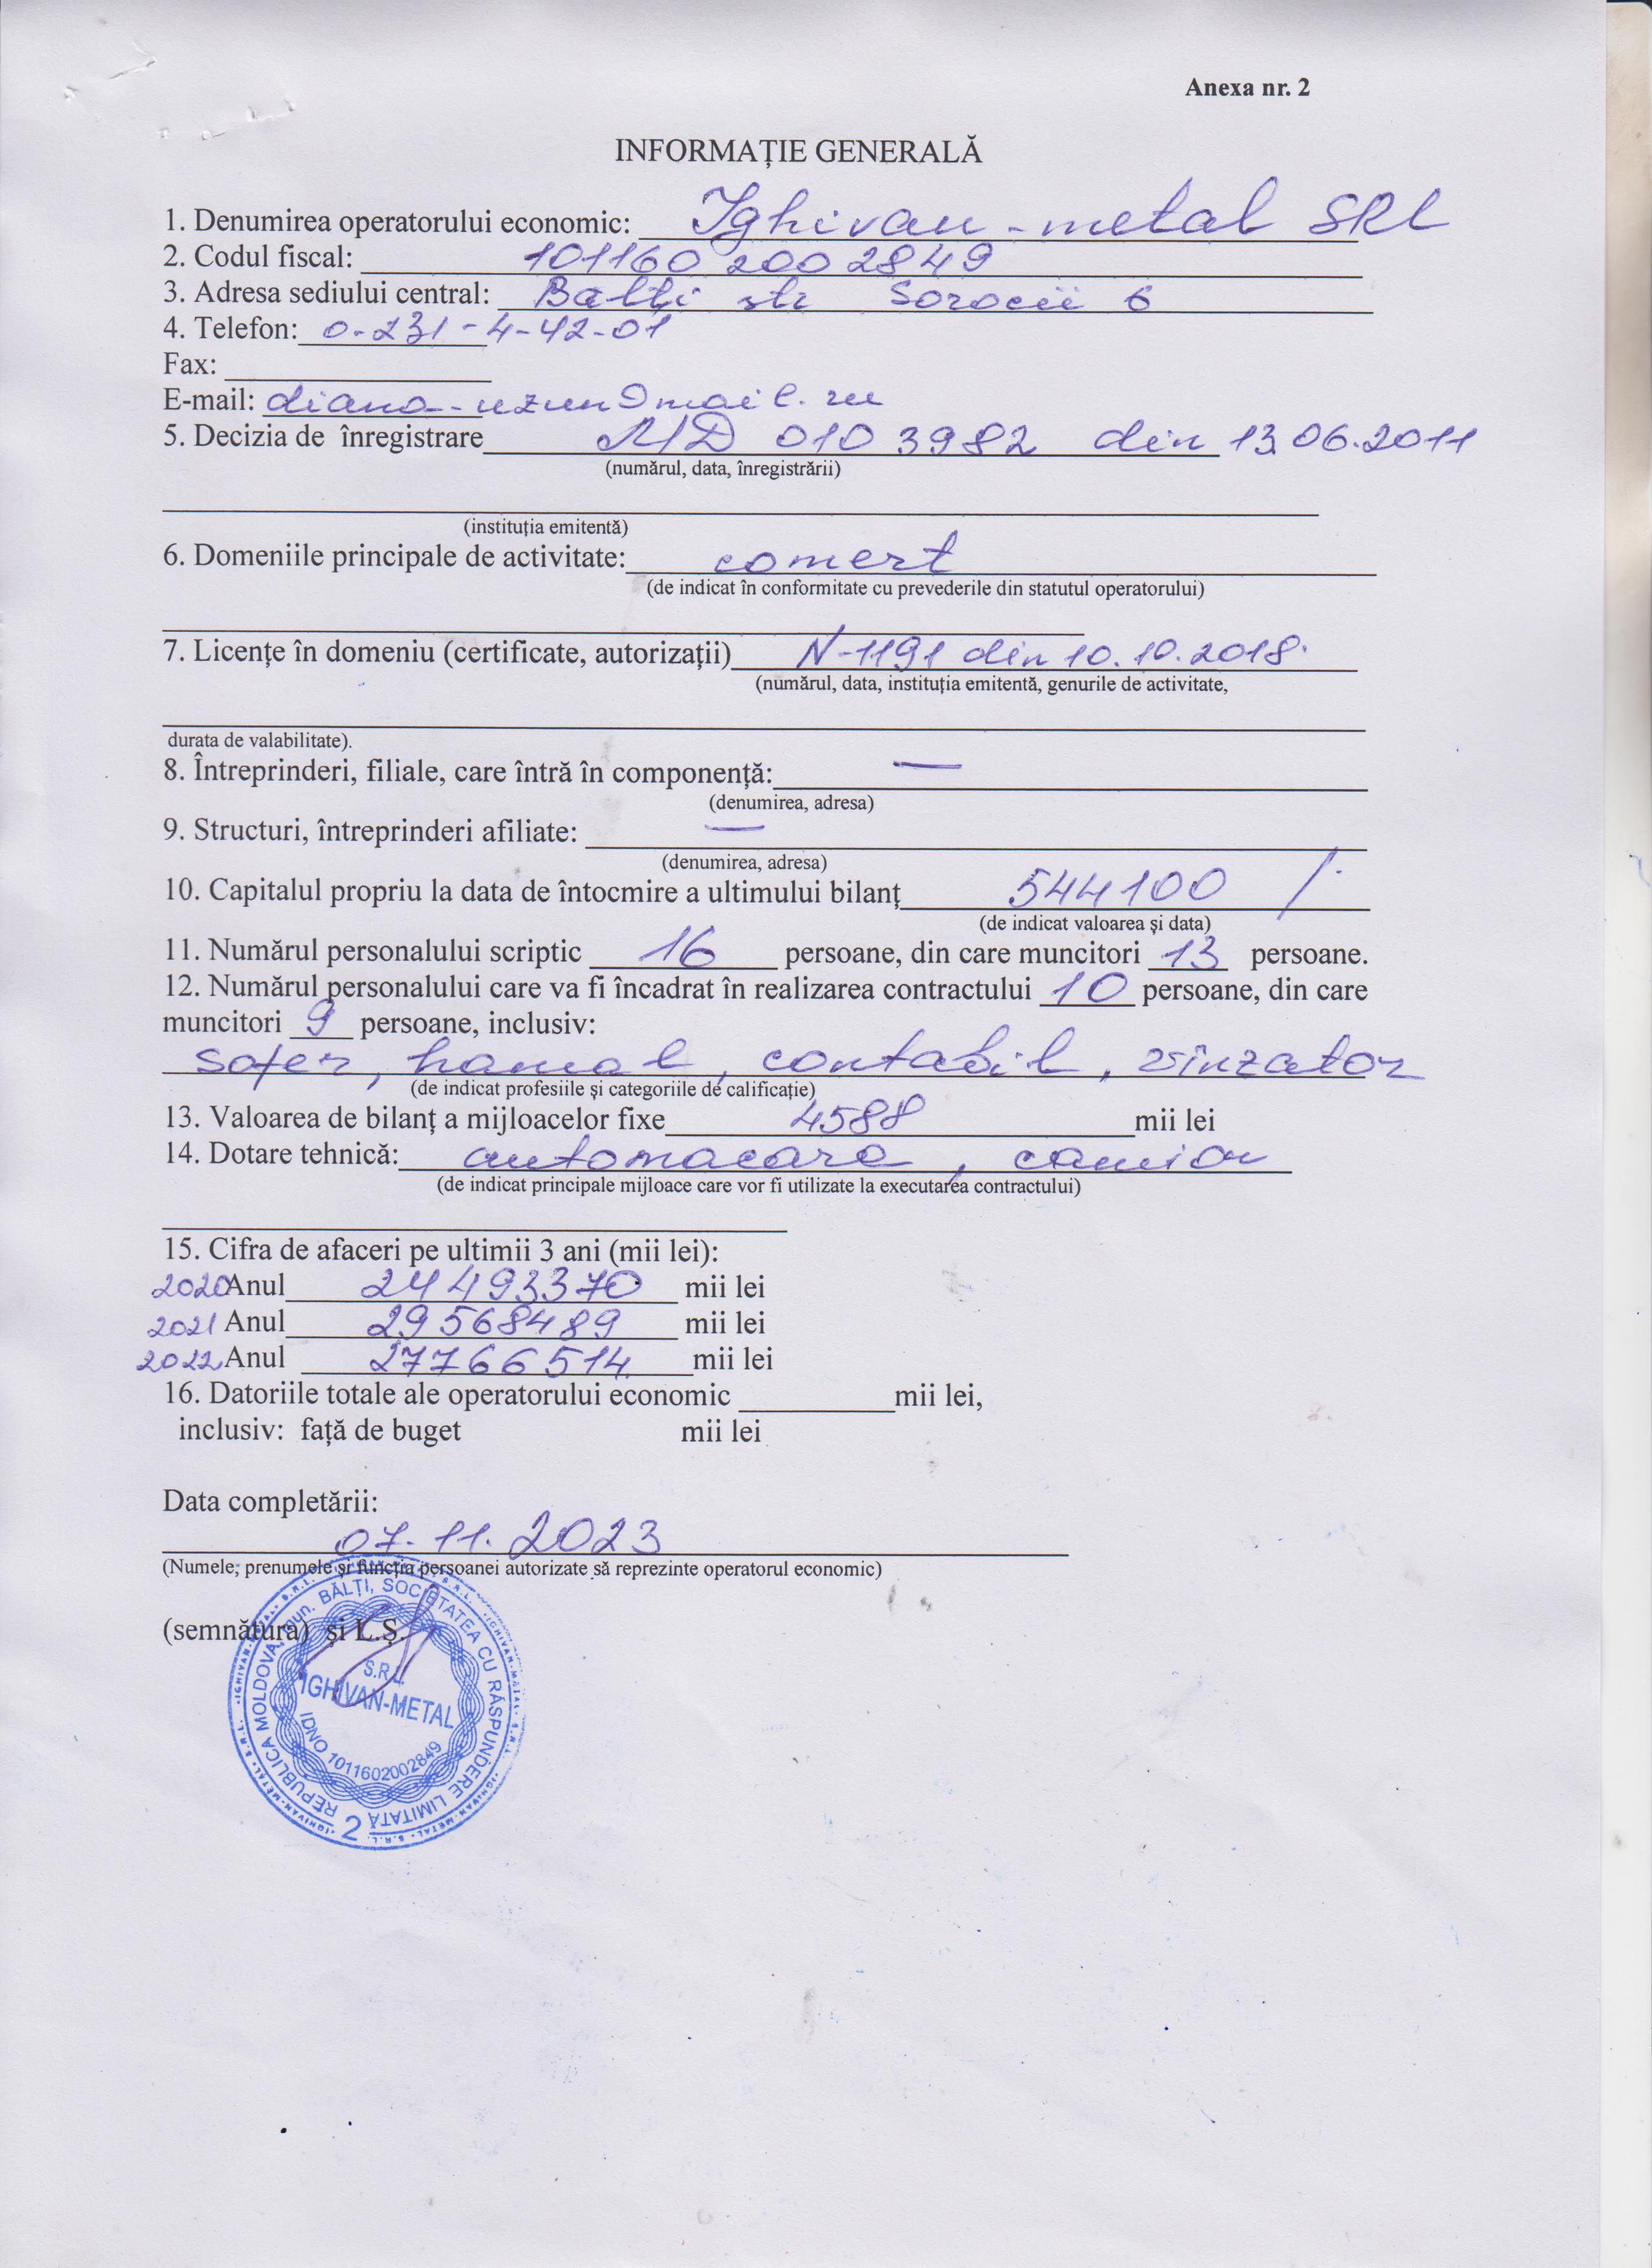 Anexa nr. 2
INFORMAȚIE GENERALĂ
1. Denumirea operatorului economic: Ighivan-metal SRL
2. Codul fiscal: 101160 200 2849
3. Adresa sediului central: Balți str Sorocii 6
4. Telefon: 0-231-4-42-01
Fax:
E-mail: diana--uzun@mail.ru
5. Decizia de înregistrare MD 010 3982 din 13.06.2011
(numărul, data, înregistrării)
(instituția emitentă)
6. Domeniile principale de activitate: comert
(de indicat în conformitate cu prevederile din statutul operatorului)
7. Licențe în domeniu (certificate, autorizații) N-1191 din 10.10.2018.
(numărul, data, instituția emitentă, genurile de activitate,
durata de valabilitate).
8. Întreprinderi, filiale, care întră în componență: —
(denumirea, adresa)
9. Structuri, întreprinderi afiliate: —
(denumirea, adresa)
10. Capitalul propriu la data de întocmire a ultimului bilanț 544100
(de indicat valoarea și data)
11. Numărul personalului scriptic 16 persoane, din care muncitori 13 persoane.
12. Numărul personalului care va fi încadrat în realizarea contractului 10 persoane, din care
muncitori 9 persoane, inclusiv:
sofer, hamal, contabil, vînzator
(de indicat profesiile și categoriile de calificație)
13. Valoarea de bilanț a mijloacelor fixe 4588 mii lei
14. Dotare tehnică: automacara, camion
(de indicat principale mijloace care vor fi utilizate la executarea contractului)
15. Cifra de afaceri pe ultimii 3 ani (mii lei):
2020 Anul 24493370 mii lei
2021 Anul 29568489 mii lei
2022 Anul 27766514 mii lei
16. Datoriile totale ale operatorului economic mii lei,
inclusiv: față de buget mii lei
Data completării:
07.11.2023
(Numele, prenumele și funcția persoanei autorizate să reprezinte operatorul economic)
(semnătura) și L.Ș.
REPUBLICA MOLDOVA, mun. BĂLȚI, SOCIETATEA CU RĂSPUNDERE LIMITATĂ
S.R.L.
IGHIVAN-METAL
IDNO 1011602002849
2